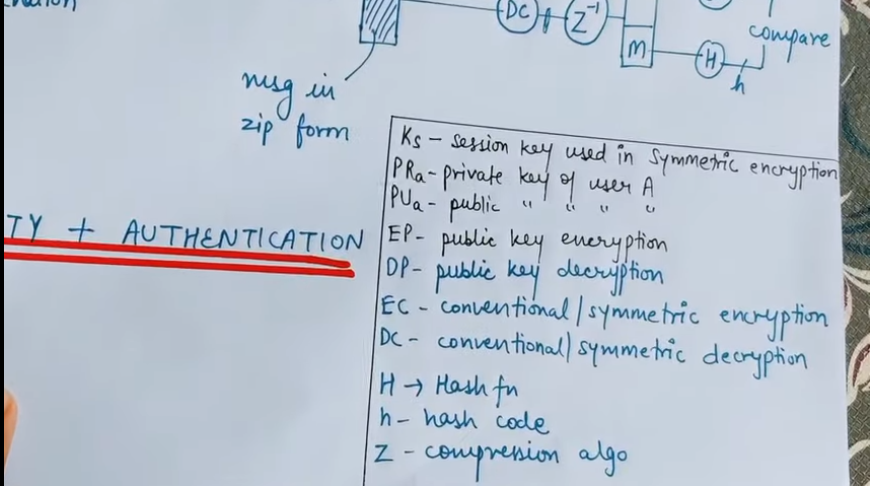 DC
Z⁻¹
compare
M
H
h
msg in
zip form
Ks - session key used in symmetric encryption
PRa - private key of user A
PUa - public " " " "
TY + AUTHENTICATION
EP - public key encryption
DP - public key decryption
EC - conventional/symmetric encryption
DC - conventional/symmetric decryption
H → Hash fn
h - hash code
Z - compression algo